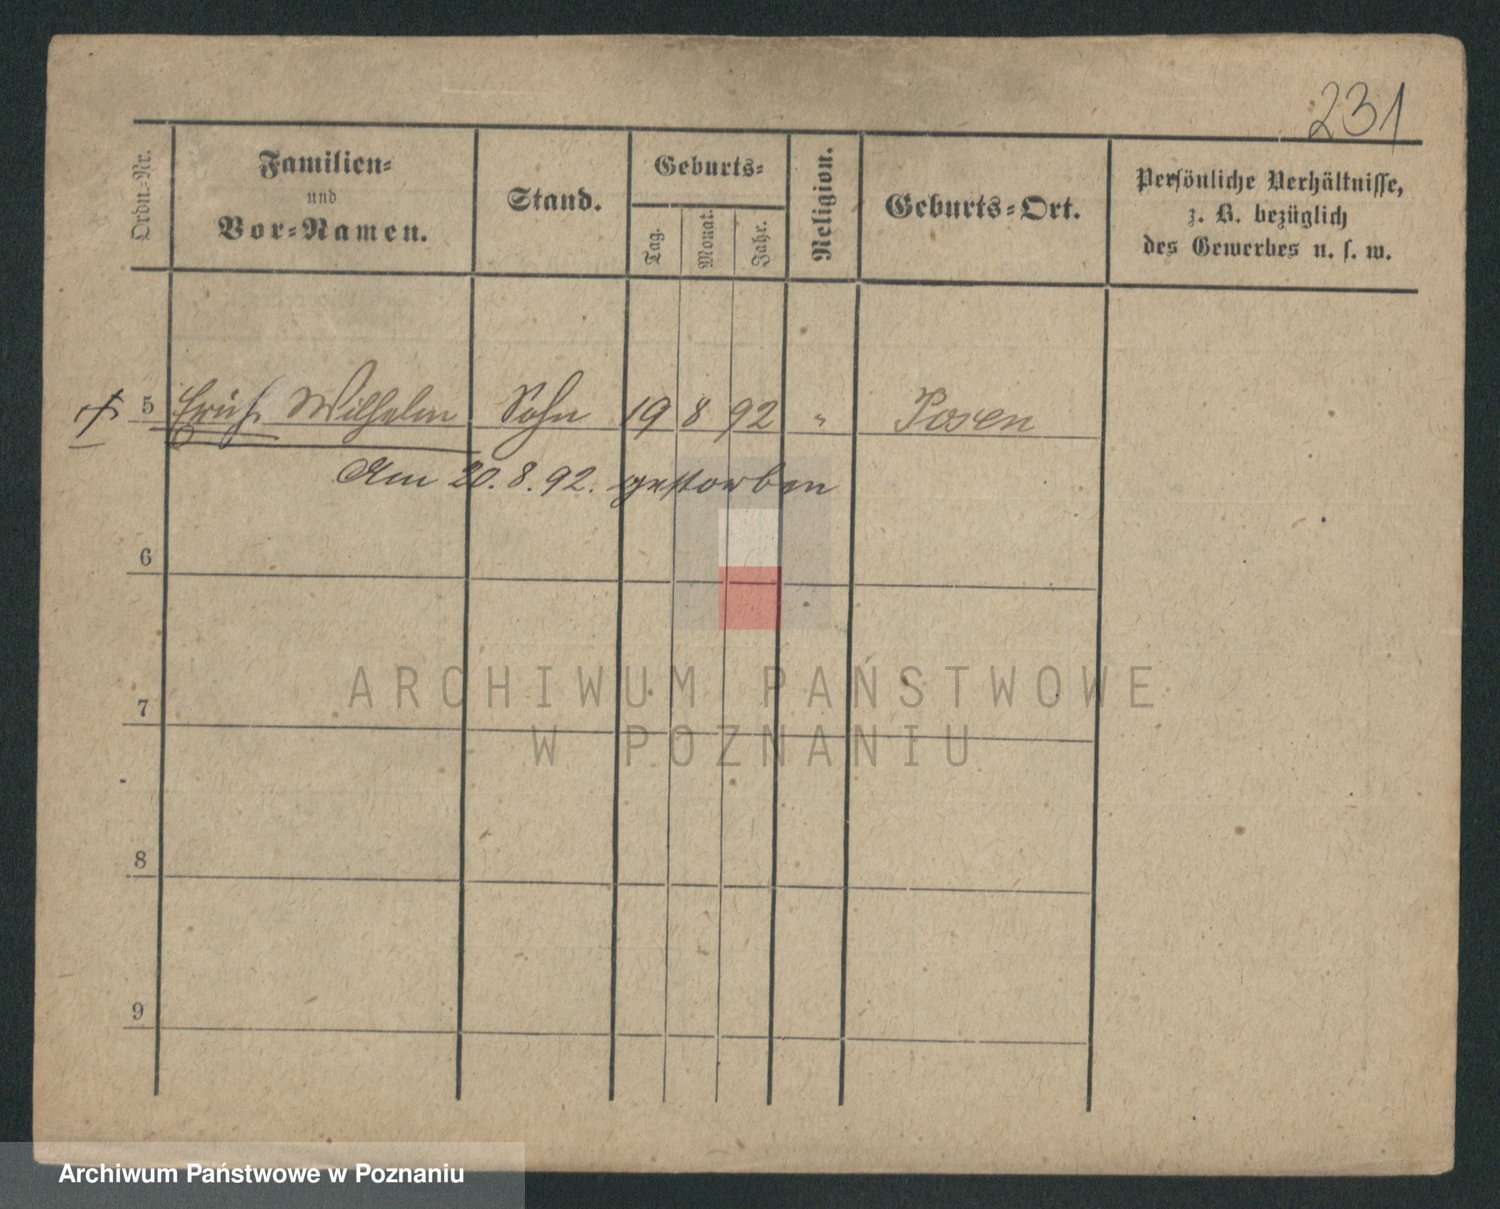 231
Ordn.-Nr.
Familien-
und
Vor-Namen.
Stand.
Geburts-
Tag.
Monat.
Jahr.
Religion.
Geburts-Ort.
Persönliche Verhältnisse,
z. B. bezüglich
des Gewerbes u. s. w.
† 5 Erich Wilhelm Sohn 19 8 92 " Posen
Am 20. 8. 92. gestorben
6
ARCHIWUM PAŃSTWOWE
7
W POZNANIU
8
9
Archiwum Państwowe w Poznaniu